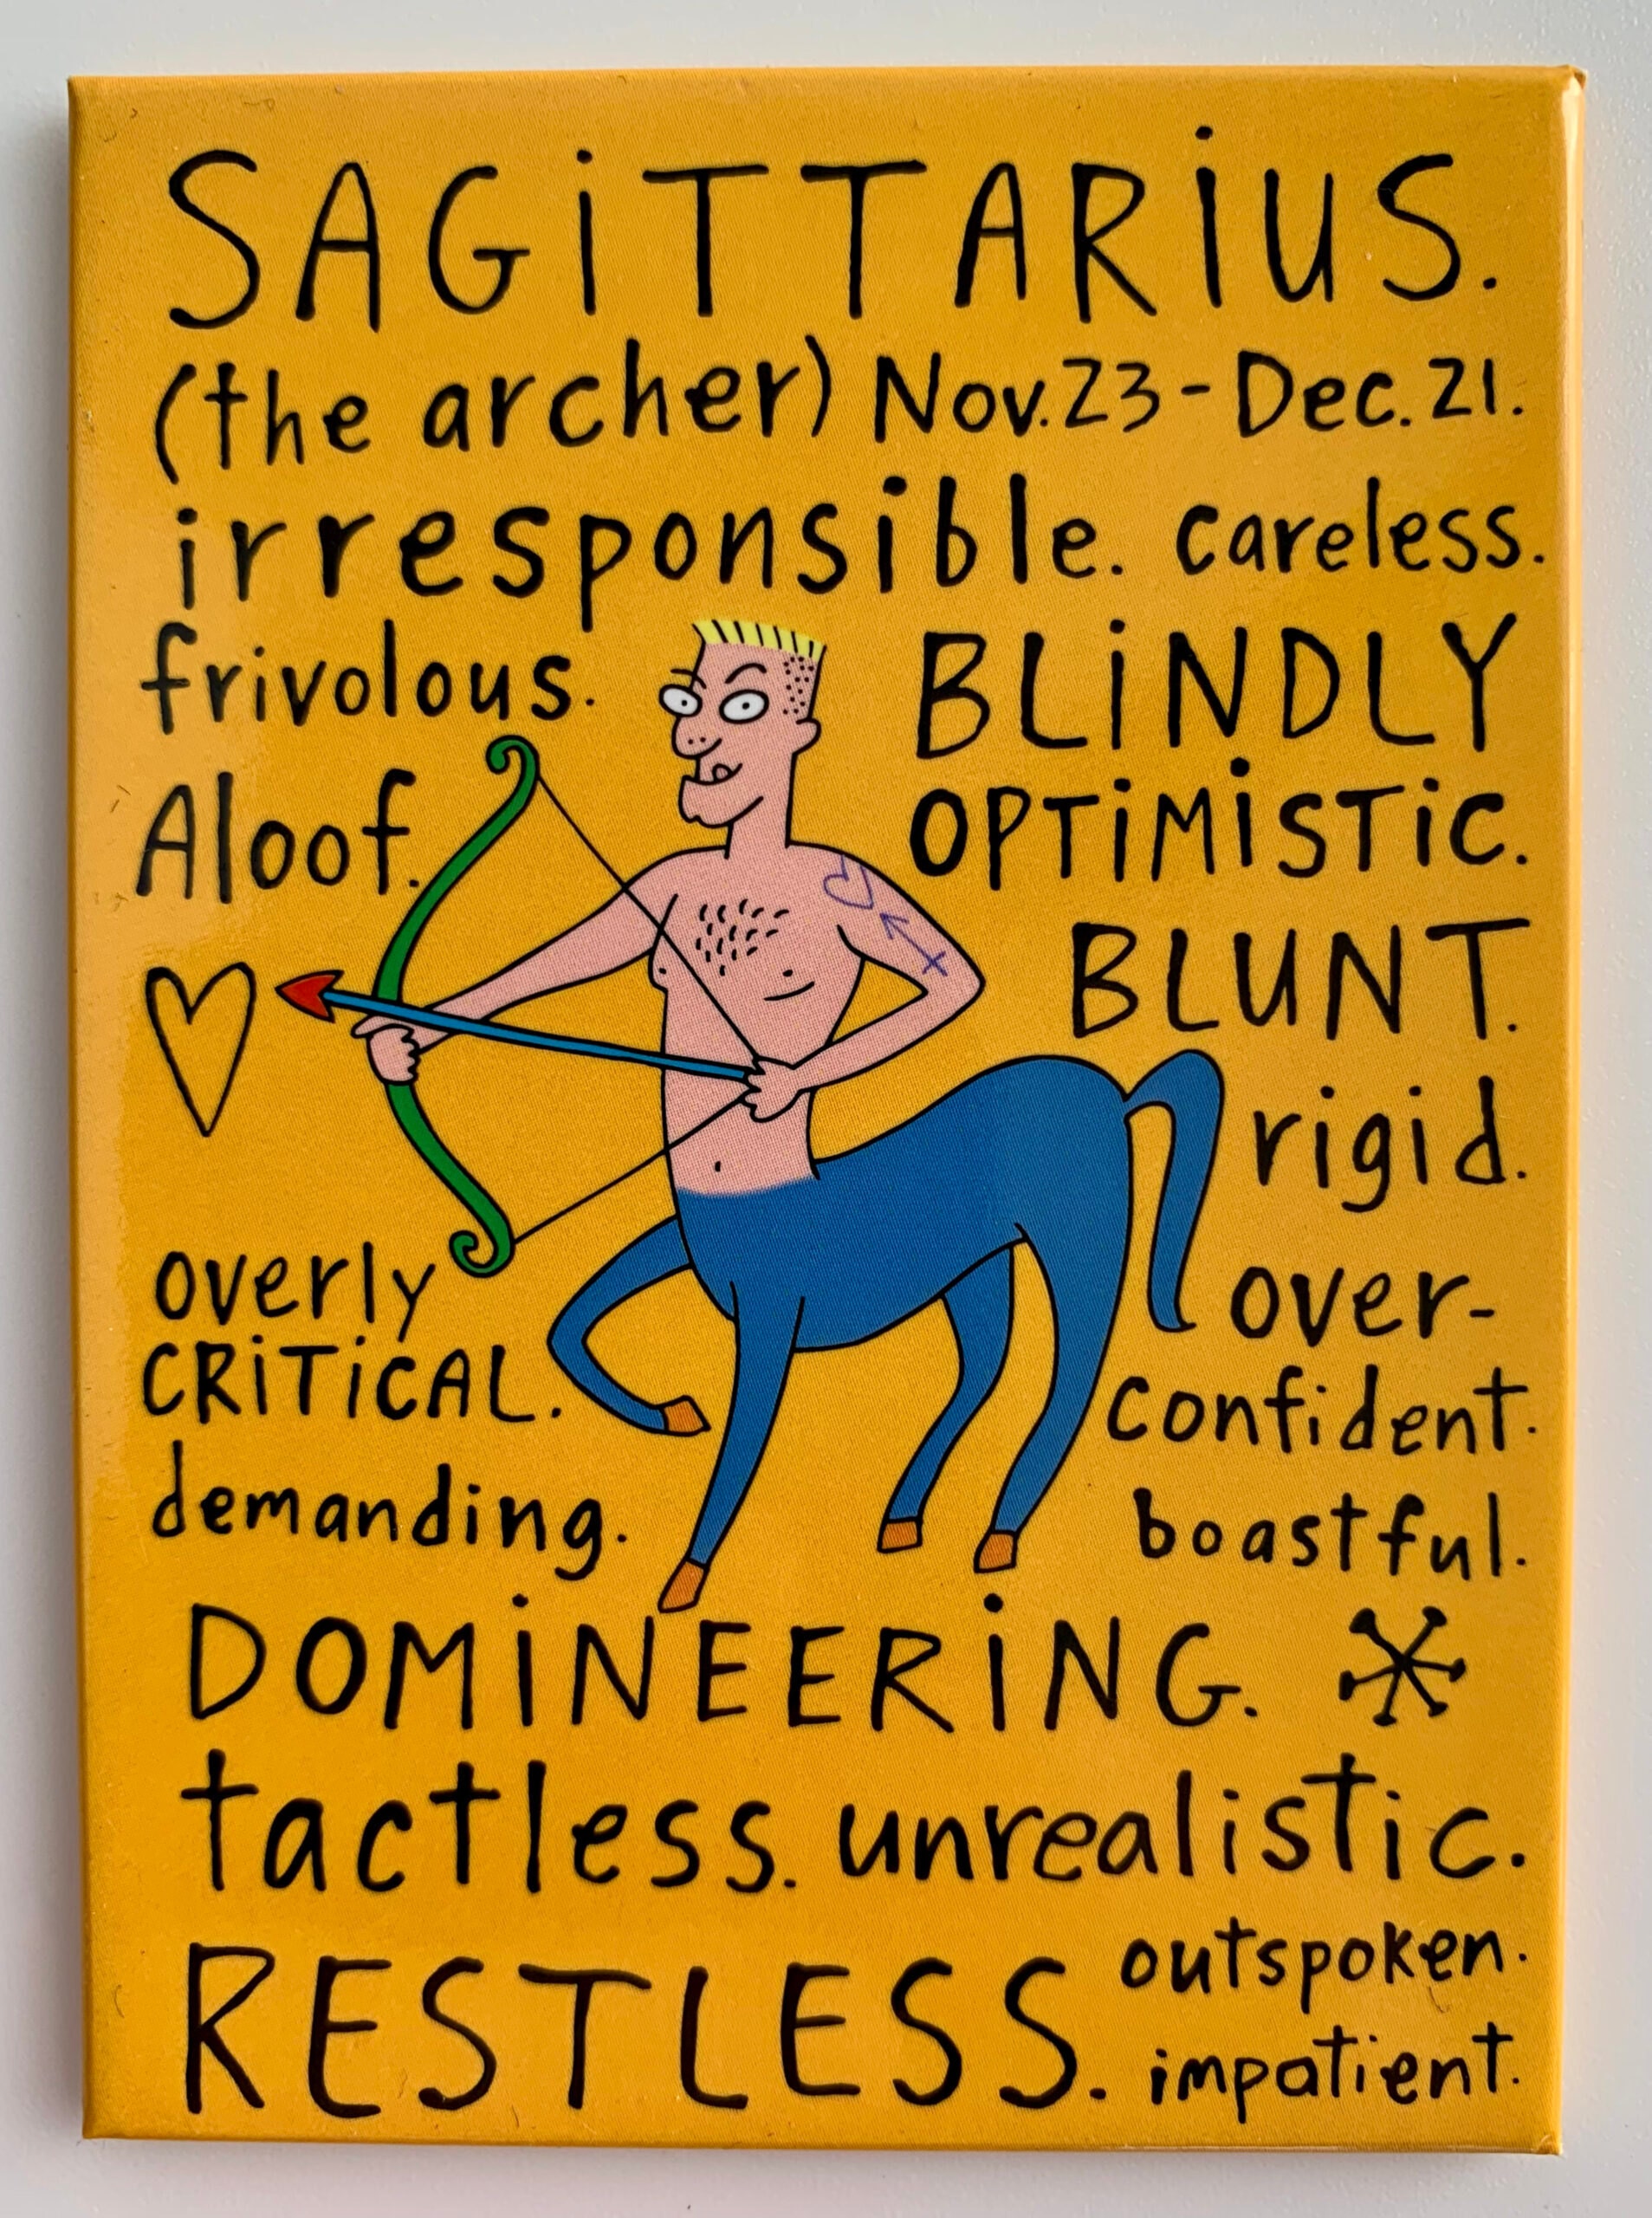 SAGiTTARiUS.
(the archer) Nov. 23 - Dec. 21.
irresponsible. careless.
frivolous.
BLiNDLY
OPTiMiSTiC.
Aloof.
BLUNT.
rigid.
overly
CRiTiCAL.
over-
confident.
demanding.
boastful.
DOMiNEERiNG.
tactless. unrealistic.
RESTLESS.
outspoken.
impatient.